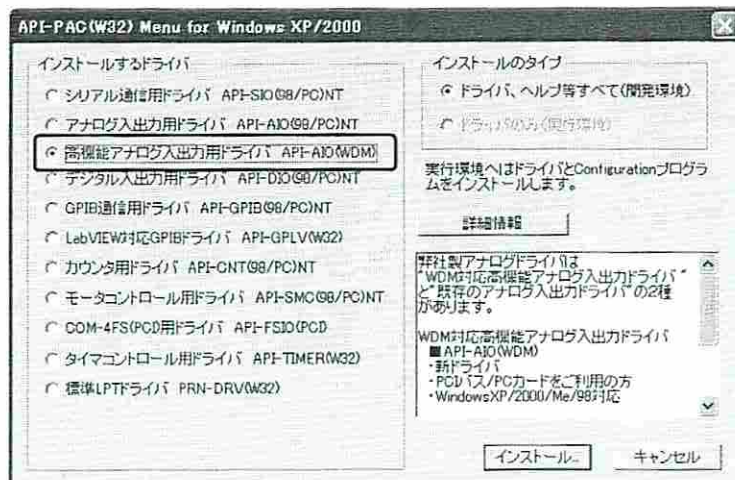 API-PAC(W32) Menu for Windows XP/2000
インストールするドライバ
シリアル通信用ドライバ API-SIO(98/PC)NT
アナログ入出力用ドライバ API-AIO(98/PC)NT
高機能アナログ入出力用ドライバ API-AIO(WDM)
デジタル入出力用ドライバ API-DIO(98/PC)NT
GPIB通信用ドライバ API-GPIB(98/PC)NT
LabVIEW対応GPIBドライバ API-GPLV(W32)
カウンタ用ドライバ API-CNT(98/PC)NT
モータコントロール用ドライバ API-SMC(98/PC)NT
COM-4FS(PCI)用ドライバ API-FSIO(PCI)
タイマコントロール用ドライバ API-TIMER(W32)
標準LPTドライバ PRN-DRV(W32)
インストールのタイプ
ドライバ、ヘルプ等すべて(開発環境)
ドライバのみ(実行環境)
実行環境へはドライバとConfigurationプログラ
ムをインストールします。
詳細情報
弊社製アナログドライバは
"WDM対応高機能アナログ入出力ドライバ"
と"既存のアナログ入出力ドライバ"の2種
があります。
WDM対応高機能アナログ入出力ドライバ
■API-AIO(WDM)
・新ドライバ
・PCIバス/PCカードをご利用の方
・WindowsXP/2000/Me/98対応
インストール...
キャンセル